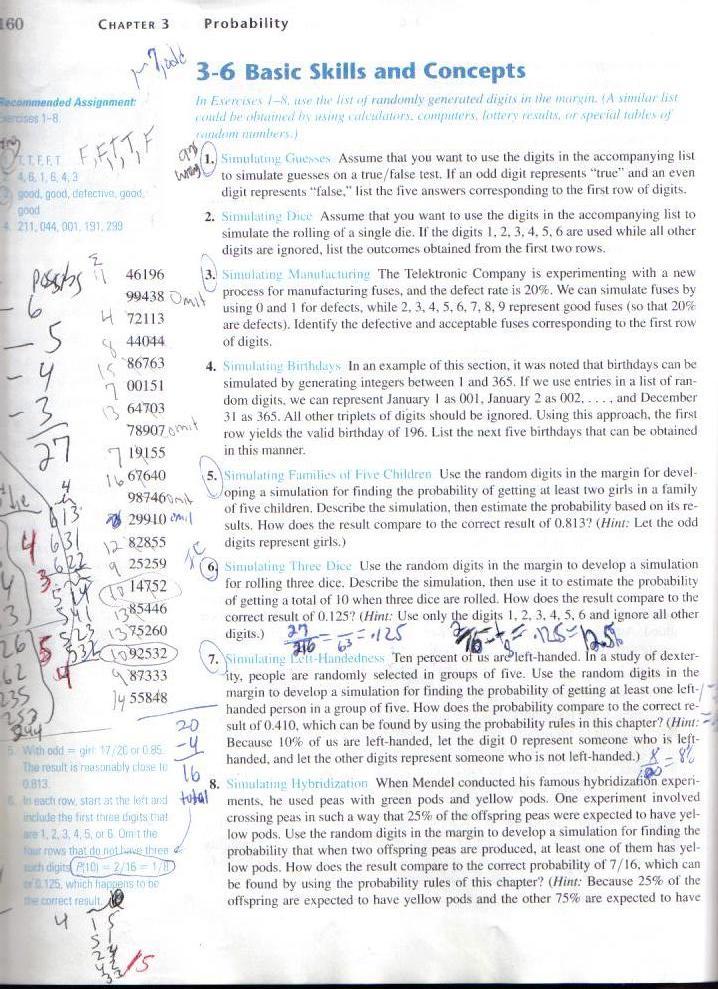 160
CHAPTER 3 Probability
3-6 Basic Skills and Concepts
Recommended Assignment:
Exercises 1–8.
1. T, T, F, F, T
F, F, T, T, F
2. 4, 6, 1, 6, 4, 3
3. good, good, defective, good,
good
4. 211, 044, 001, 191, 299
In Exercises 1–8, use the list of randomly generated digits in the margin. (A similar list
could be obtained by using calculators, computers, lottery results, or special tables of
random numbers.)
1. Simulating Guesses Assume that you want to use the digits in the accompanying list
to simulate guesses on a true/false test. If an odd digit represents “true” and an even
digit represents “false,” list the five answers corresponding to the first row of digits.
2. Simulating Dice Assume that you want to use the digits in the accompanying list to
simulate the rolling of a single die. If the digits 1, 2, 3, 4, 5, 6 are used while all other
digits are ignored, list the outcomes obtained from the first two rows.
3. Simulating Manufacturing The Telektronic Company is experimenting with a new
process for manufacturing fuses, and the defect rate is 20%. We can simulate fuses by
using 0 and 1 for defects, while 2, 3, 4, 5, 6, 7, 8, 9 represent good fuses (so that 20%
are defects). Identify the defective and acceptable fuses corresponding to the first row
of digits.
4. Simulating Birthdays In an example of this section, it was noted that birthdays can be
simulated by generating integers between 1 and 365. If we use entries in a list of ran-
dom digits, we can represent January 1 as 001, January 2 as 002, . . . , and December
31 as 365. All other triplets of digits should be ignored. Using this approach, the first
row yields the valid birthday of 196. List the next five birthdays that can be obtained
in this manner.
5. Simulating Families of Five Children Use the random digits in the margin for devel-
oping a simulation for finding the probability of getting at least two girls in a family
of five children. Describe the simulation, then estimate the probability based on its re-
sults. How does the result compare to the correct result of 0.813? (Hint: Let the odd
digits represent girls.)
6. Simulating Three Dice Use the random digits in the margin to develop a simulation
for rolling three dice. Describe the simulation, then use it to estimate the probability
of getting a total of 10 when three dice are rolled. How does the result compare to the
correct result of 0.125? (Hint: Use only the digits 1, 2, 3, 4, 5, 6 and ignore all other
digits.)
27/216 = .125
.125 = 12.5%
7. Simulating Left-Handedness Ten percent of us are left-handed. In a study of dexter-
ity, people are randomly selected in groups of five. Use the random digits in the
margin to develop a simulation for finding the probability of getting at least one left-
handed person in a group of five. How does the probability compare to the correct re-
sult of 0.410, which can be found by using the probability rules in this chapter? (Hint:
Because 10% of us are left-handed, let the digit 0 represent someone who is left-
handed, and let the other digits represent someone who is not left-handed.)
8. Simulating Hybridization When Mendel conducted his famous hybridization experi-
ments, he used peas with green pods and yellow pods. One experiment involved
crossing peas in such a way that 25% of the offspring peas were expected to have yel-
low pods. Use the random digits in the margin to develop a simulation for finding the
probability that when two offspring peas are produced, at least one of them has yel-
low pods. How does the result compare to the correct probability of 7/16, which can
be found by using the probability rules of this chapter? (Hint: Because 25% of the
offspring are expected to have yellow pods and the other 75% are expected to have
11 46196
99438 Omit
4 72113
8 44044
15 86763
7 00151
13 64703
78907 omit
7 19155
16 67640
98746 omit
29910 omit
12 82855
9 25259
10 14752
13 85446
13 75260
10 92532
9 87333
14 55848
6
5
4
3
27
20
-4
16
total
5. With odd = girl: 17/20 or 0.85.
The result is reasonably close to
0.813.
6. In each row, start at the left and
include the first three digits that
are 1, 2, 3, 4, 5, or 6. Omit the
four rows that do not have three
such digits. P(10) = 2/16 = 1/8
or 0.125, which happens to be
the correct result.